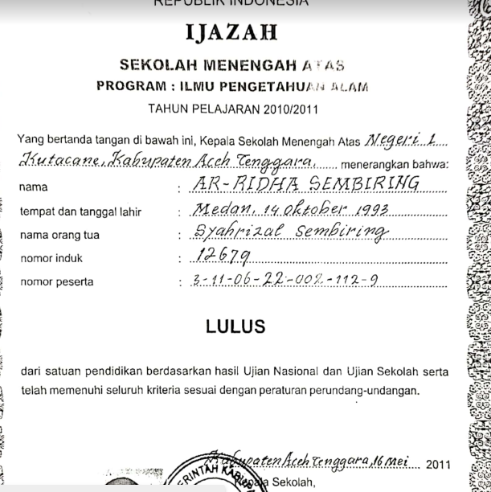 REPUBLIK INDONESIA
IJAZAH
SEKOLAH MENENGAH ATAS
PROGRAM : ILMU PENGETAHUAN ALAM
TAHUN PELAJARAN 2010/2011
Yang bertanda tangan di bawah ini, Kepala Sekolah Menengah Atas Negeri 1
Kutacane, Kabupaten Aceh Tenggara, menerangkan bahwa:
nama : AR-RIDHA SEMBIRING
tempat dan tanggal lahir : Medan, 14 Oktober 1993
nama orang tua : Syahrizal Sembiring
nomor induk : 12679
nomor peserta : 3-11-06-22-002-112-9
LULUS
dari satuan pendidikan berdasarkan hasil Ujian Nasional dan Ujian Sekolah serta
telah memenuhi seluruh kriteria sesuai dengan peraturan perundang-undangan.
Kabupaten Aceh Tenggara, 16 Mei 2011
Kepala Sekolah,